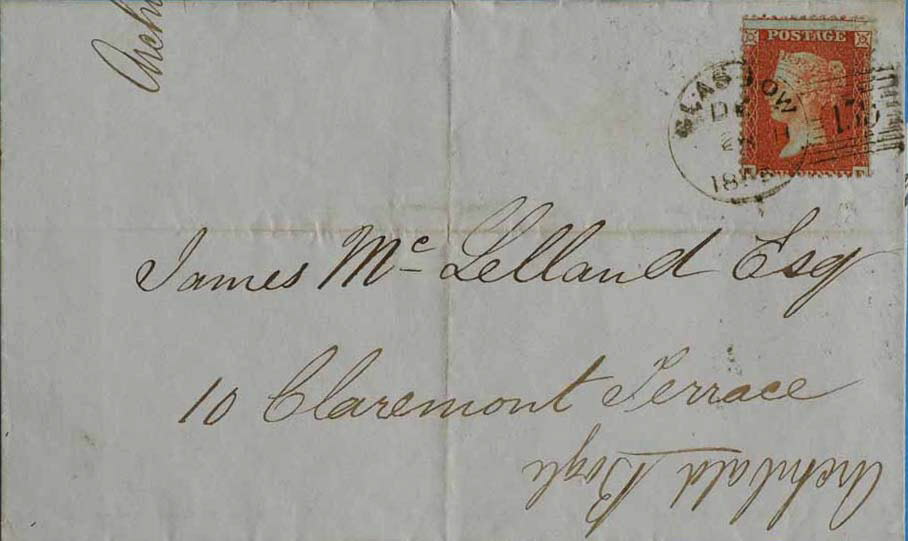 Archi
POSTAGE
GLASGOW
DE
18
James Mc Lelland Esq
10 Claremont Terrace
Archibald Bogle